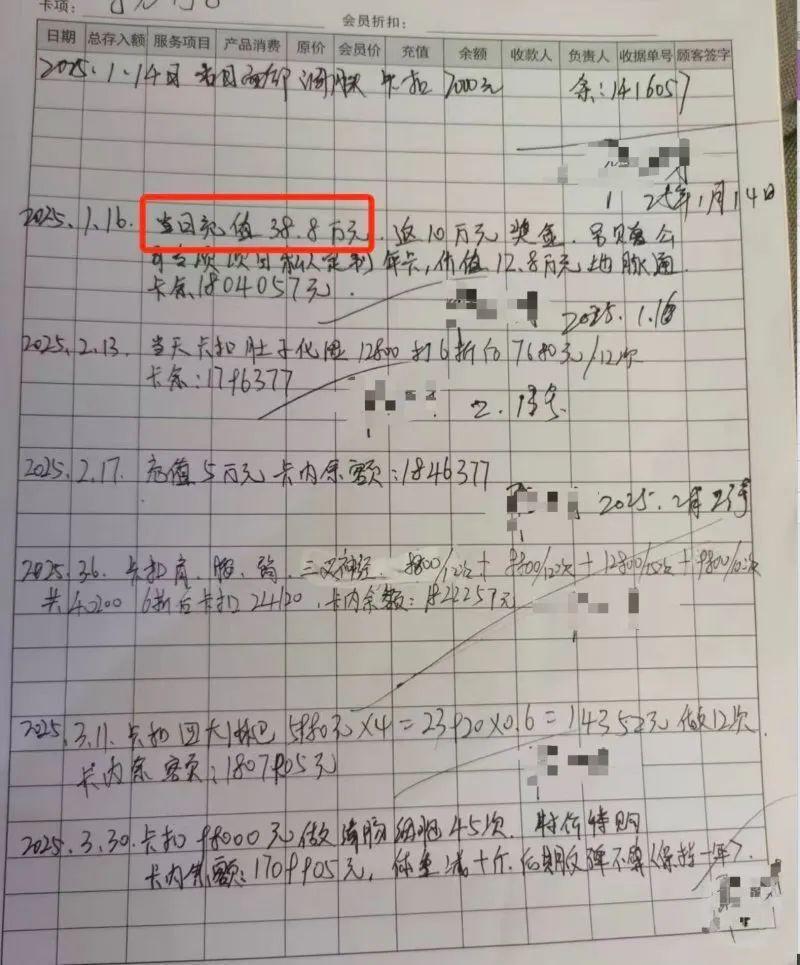 卡项：
会员折扣：
日期 总存入额 服务项目 产品消费 原价 会员价 充值 余额 收款人 负责人 收据单号 顾客签字
2025.1.14日 卡扣 7000元 余：1416057
25年1月14日
2025.1.16. 当日充值 38.8万元. 返10万元奖金.
项目私人定制年卡，价值12.8万元 通
卡余1804057元.
2025.1.16
2025.2.13. 当天卡扣肚子化 12800 打6折后7680元/12次
卡余：1796377
2.13
2025.2.17. 充值5万元 卡内余额：1846377
2025.2月
2025.3.6. 卡扣肩、腿、三叉神经. 9800/12次+9800/12次+12800/ 次+9800/ 次
共40200 6折后卡扣24120. 卡内余额：1822257元
2025.3.11. 卡扣四大淋巴 5980元×4=23920×0.6=14352元 做12次
卡内余额：1807905元
2025.3.30. 卡扣98000元做 45次. 特价特购
卡内余额：1709905元，体重减十斤. 后期反弹不算（保持一年）.